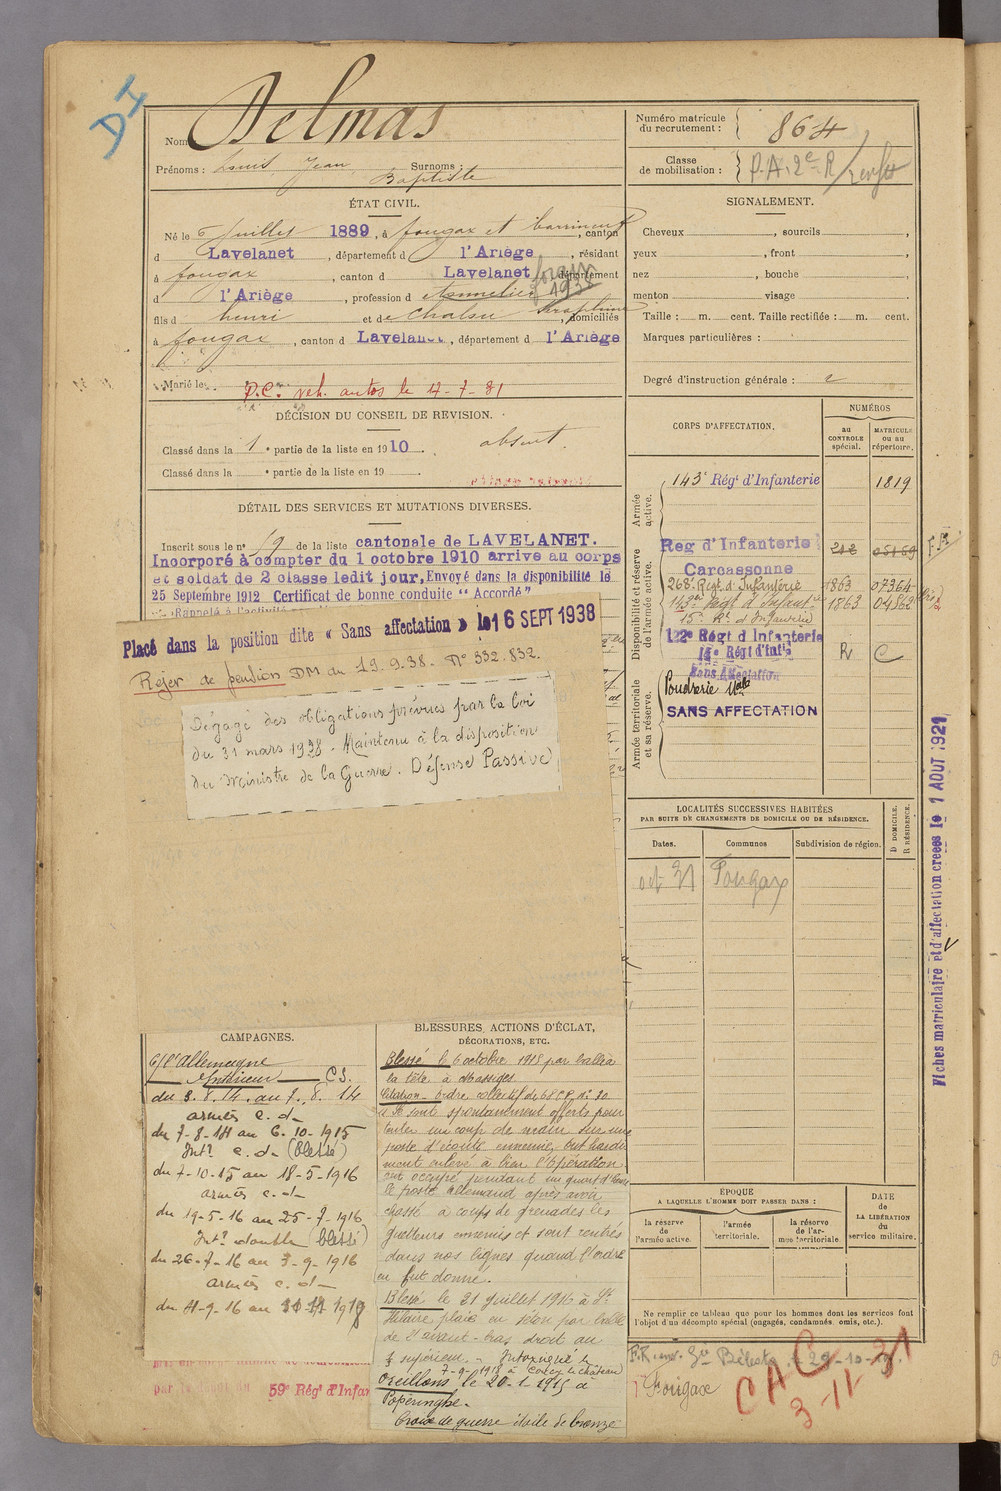 DI
Nom Delmas
Prénoms : Louis, Jean, Surnoms :
Baptiste
ÉTAT CIVIL.
Né le 6 Juillet 1889, à fougax et barrineuf, canton
d Lavelanet, département d l'Ariège, résidant
à fougax, canton d Lavelanet, département
d l'Ariège, profession d
forain 1938
fils d henri et de Chalou Séraphine, domiciliés
à fougax, canton d Lavelanet, département d l'Ariège
Marié le
P.C. veh. autos le 17-7-31
DÉCISION DU CONSEIL DE REVISION.
Classé dans la 1 e partie de la liste en 1910. absent.
Classé dans la e partie de la liste en 19 .
DÉTAIL DES SERVICES ET MUTATIONS DIVERSES.
Inscrit sous le n° 19 de la liste cantonale de LAVELANET.
Incorporé à compter du 1 octobre 1910 arrive au corps
et soldat de 2 classe ledit jour, Envoyé dans la disponibilité le
25 Septembre 1912 Certificat de bonne conduite "Accordé"
Placé dans la position dite « Sans affectation » le 16 SEPT 1938
Rejet de pension DM du 19.9.38. N° 332.832.
Dégagé des obligations prévues par la loi
du 31 mars 1928. Maintenu à la disposition
du Ministre de la Guerre. Défense Passive
CAMPAGNES.
C/ l'Allemagne
Intérieur C.S.
du 3.8.14 au 7.8.14
armées c. d.
du 7-8-14 au 6-10-1915
Intr c. d. (blessé)
du 7-10-15 au 18-5-1916
armées c. d.
du 19-5-16 au 25-7-1916
Intr double (blessé)
du 26-7-16 au 3-9-1916
armées c. d.
du 4-9-16 au 11-11-1918
59e Régt d'Infan
BLESSURES, ACTIONS D'ÉCLAT,
DÉCORATIONS, ETC.
Blessé le 6 octobre 1915 par balle à
la tête à Massiges
Citation - Ordre collectif de
Se sont spontanément offerts pour
tenter un coup de main sur un
poste d'écoute ennemie, ont hardi
ment enlevé à bien l'opération
ont occupé pendant un quart d'heure
le poste allemand après avoir
chassé à coups de grenades les
guetteurs ennemis et sont rentrés
dans nos lignes quand l'ordre
en fut donné.
Blessé le 21 Juillet 1916 à St
Hilaire plaie en séton par balle
de l'avant-bras droit au
1/3 supérieur. - Intoxiqué le
7-9-1918 à Coucy le château
Oreillons le 20-1-1915 à
Popéringhe.
Croix de guerre étoile de bronze
Numéro matricule
du recrutement : 864
Classe
de mobilisation : P.A. 2e R
SIGNALEMENT.
Cheveux , sourcils ,
yeux , front ,
nez , bouche ,
menton visage
Taille : m. cent. Taille rectifiée : m. cent.
Marques particulières :
Degré d'instruction générale : 2
CORPS D'AFFECTATION.
NUMÉROS
au CONTROLE spécial.
MATRICULE ou au répertoire.
Armée active.
143e Régt d'Infanterie 1819
Disponibilité et réserve de l'armée active.
Reg d'Infanterie
Carcassonne
268e Régt d'Infanterie 1863 07364
143e Régt d'Infantrie 1863 04862
15e Rt d'Infanterie
122e Régt d'Infanterie R C
Sans Affectation
Armée territoriale et sa réserve.
Poudrerie
SANS AFFECTATION
LOCALITÉS SUCCESSIVES HABITÉES
PAR SUITE DE CHANGEMENTS DE DOMICILE OU DE RÉSIDENCE.
Dates.
Communes
Subdivision de région.
D DOMICILE.
R RÉSIDENCE.
oct 31 Fougax
Fiches matriculaire et d'affectation créées le 1 AOUT 1929
ÉPOQUE
A LAQUELLE L'HOMME DOIT PASSER DANS :
la réserve de l'armée active.
l'armée territoriale.
la réserve de l'armée territoriale.
DATE
DE
LA LIBÉRATION
du
service militaire.
Ne remplir ce tableau que pour les hommes dont les services font
l'objet d'un décompte spécial (engagés, condamnés, omis, etc.).
Bélesta
Fougax
CAC 31
3-11-31